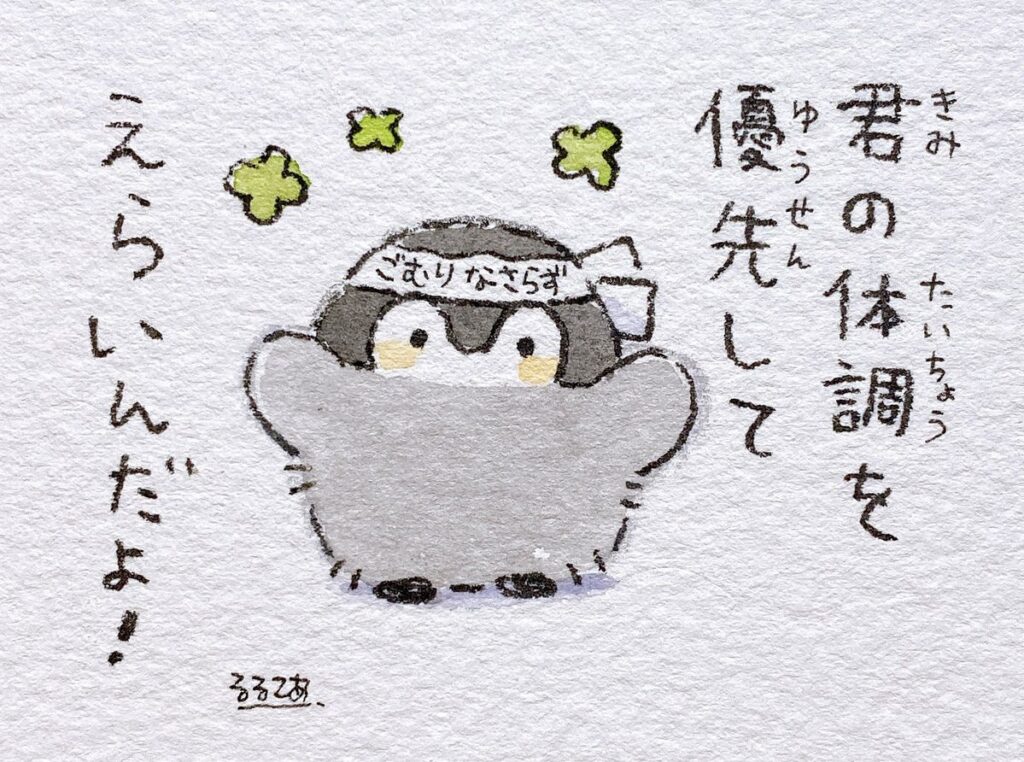 君の体調を
きみ
たいちょう
優先して
ゆうせん
ごむりなさらず
えらいんだよ！
るるてあ